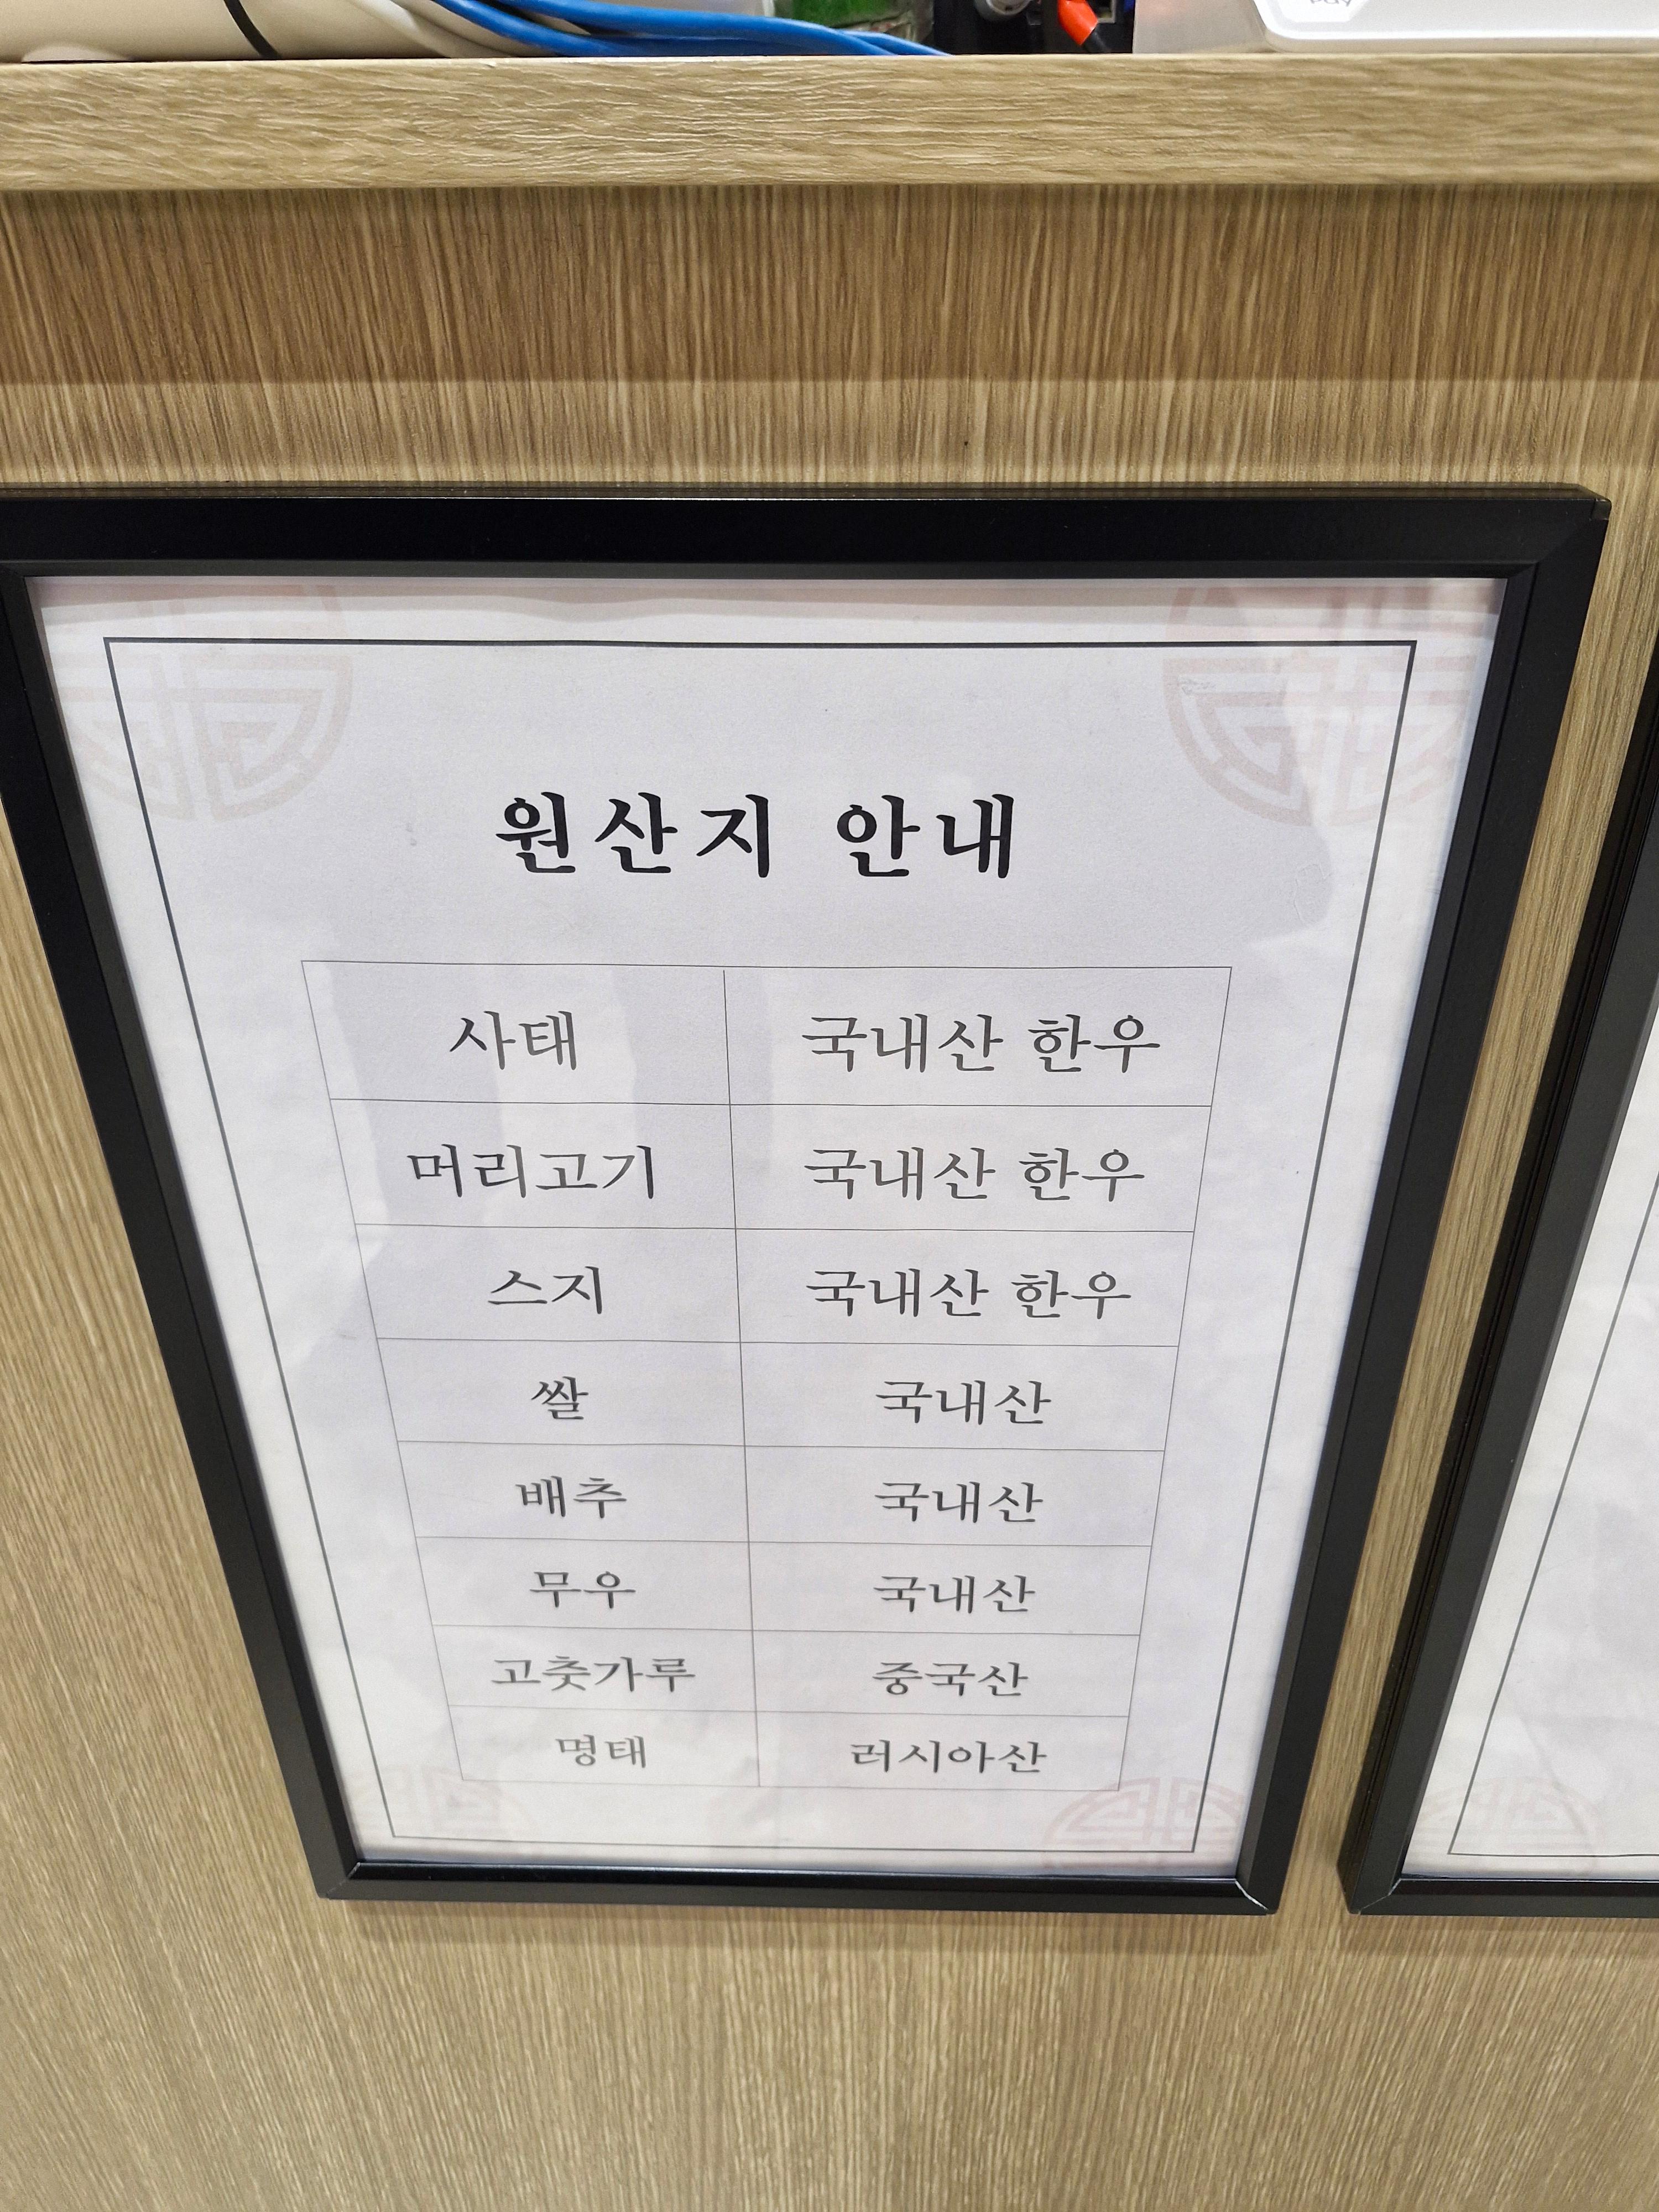 pay
원산지 안내
사태 국내산 한우
머리고기 국내산 한우
스지 국내산 한우
쌀 국내산
배추 국내산
무우 국내산
고춧가루 중국산
명태 러시아산